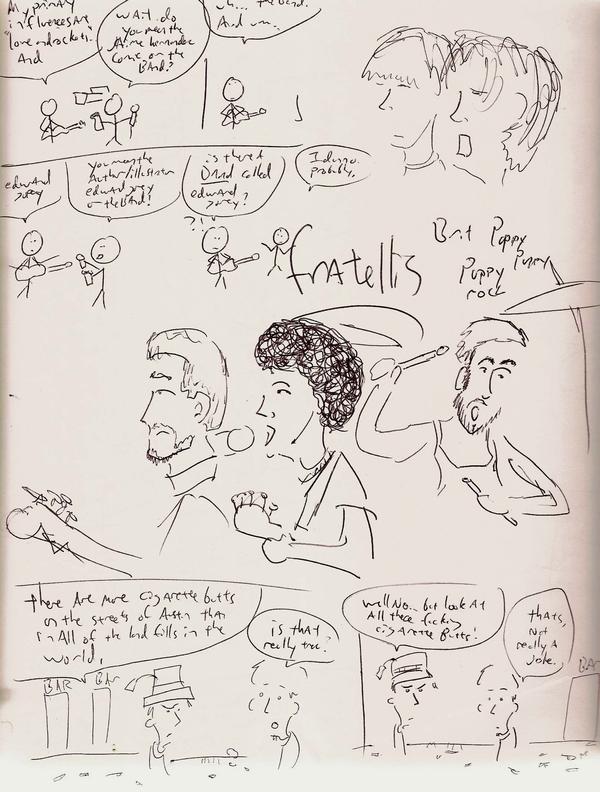 My primary
influences are
"love and rockets".
And
wait. do
you mean the
Jaime hernandez
comic or the
BAnd?
uh... the band.
And um..
edward
gorey
you mean the
Author/illustrator
edward gorey
or the band?
is there a
BAnd called
edward
gorey?
I dunno.
probably.
?!
fratellis
Brit Poppy
Poppy Punny
rock
there Are more cigarette butts
on the streets of Austin than
in All of the land fills in the
world.
is that
really true?
well No... but look At
All these fucking
cigarette Butts!
thats,
not
really a
joke.
BAR
BAR
BAR